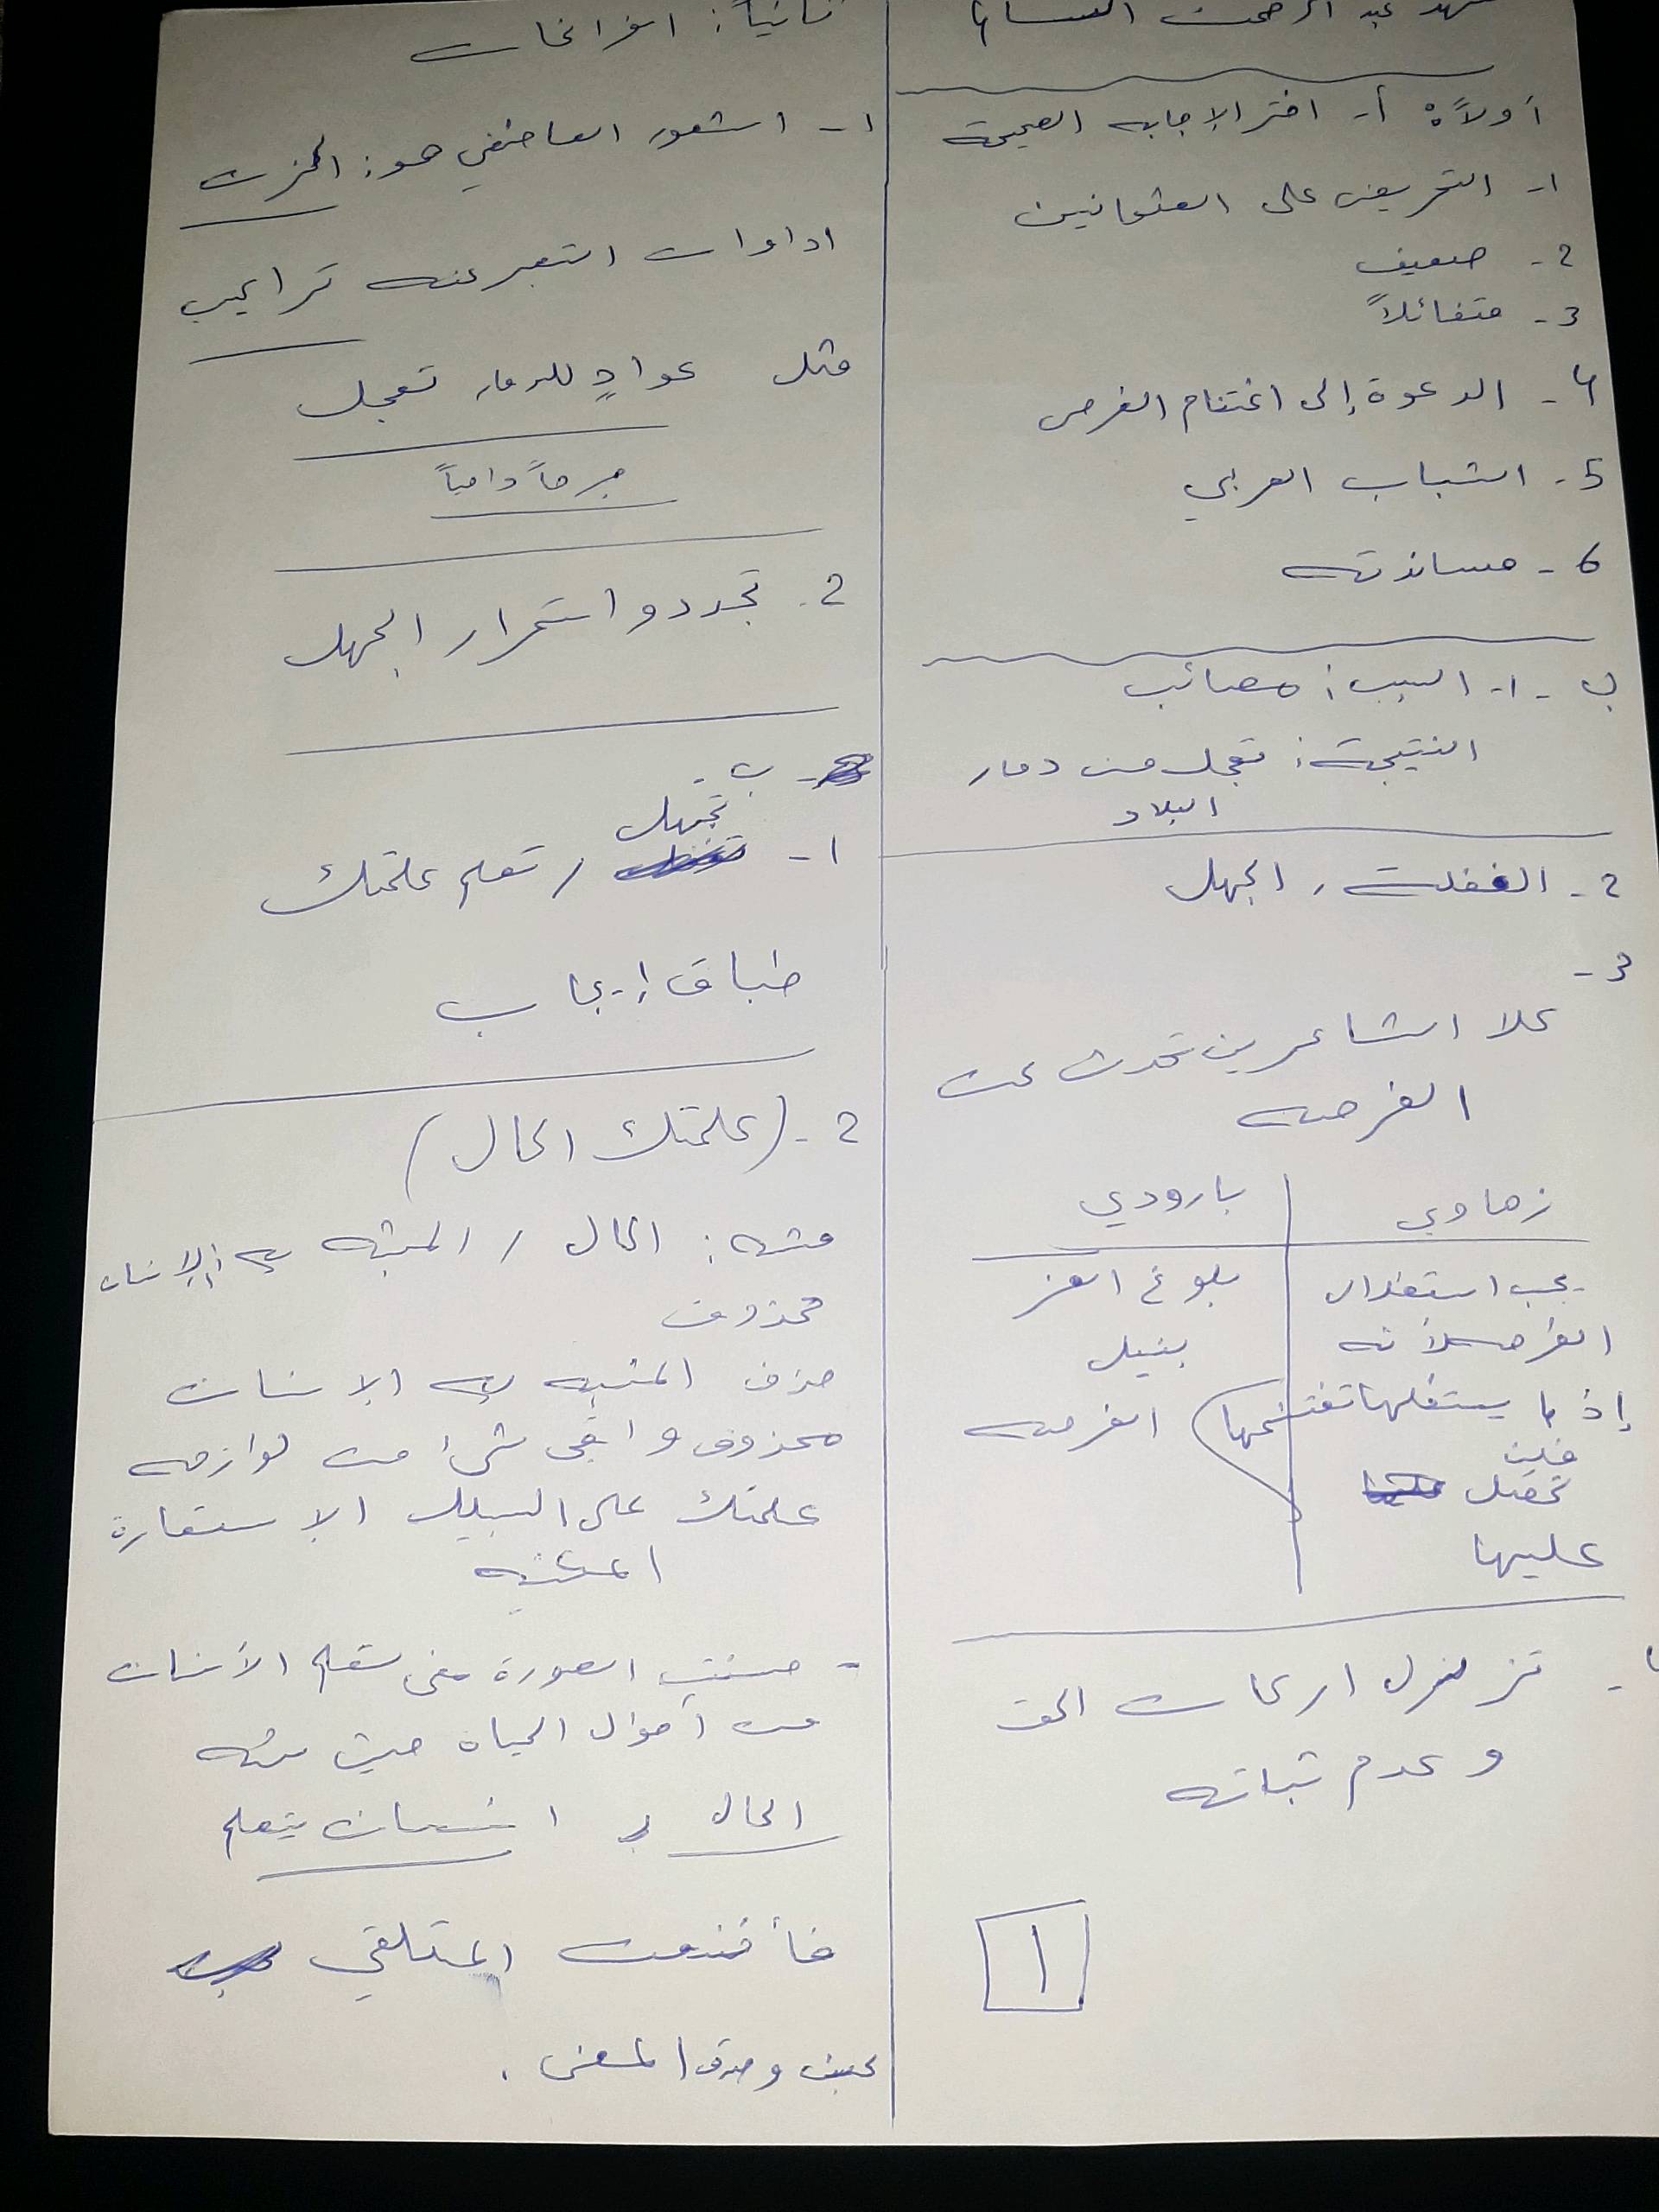 عبد الرحمن
أولاً: أ- اختر الإجابه الصحيحة
١- التحريض على العثمانيين
2- ضعيف
3- متفائلاً
4- الدعوة إلى اغتنام الفرص
5- الشباب العربي
6- مساندته
ب -١- السبب: مصائب
النتيجة: تعجل من دمار
البلاد
2- الغفلة، الجهل
3-
كلا الشاعرين تحدث عن
الفرصه
زهاوي
بارودي
يجب استغلال
الفرصه لأنه
إذ لم يستغلها تغتنمها
فلن
تحصل
عليها
بلوغ العز
بنيل
الفرصه
تزلزل اركان الحق
وعدم ثباته
١
ثانياً: الفراغات
١- الشعور العاطفي هو: الحزن
اداوات التعبر عنه تراكيب
مثل عوادٍ للدمار تعجل
جرحاً دامياً
2- تجدد و استمرار الجهل
ب-
١- تجهل / تعلم علمتك
طباق إيجاب
2- (علمتك الحال)
مشبه: الحال / المشبه به: الإنسان
محذوف
حذف المشبه به الإنسان
محذوف وابقى شيء من لوازمه
علمتك على السبيل الاستعارة
المكنيه
- حسنت الصورة معنى تعلم الأنسان
من أحوال الحياه حيث شبه
الحال بـ انسان يتعلم
فأقنعت المتلقي
بحسن وصدق المعنى .